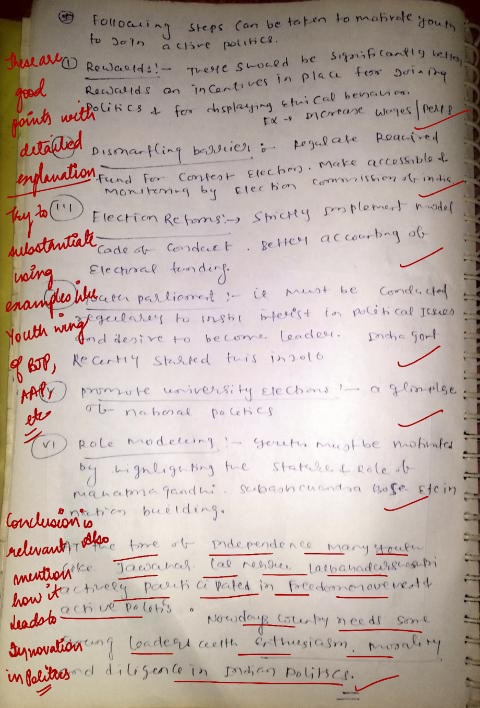 Following steps can be taken to motivate youth
to Join active politics.
(i) Rewards:- There should be significantly better
Rewards an incentives in place for Joining
politics & for displaying ethical behavior.
Ex → increase wages/perks
Dismantling barrier:- Regulate Required
Fund for Contest Election. Make accessible &
monitoring by Election Commission of india
iii) Election Reforms:→ Strictly implement model
Code of Conduct. Better accounting of
Electoral funding.
Youth parliament:- it must be Conducted
regulares to instil interest in political Issues
and desire to become leader. India Govt
Recently started this in 2010
promote university Elections:- a glimpse
of national politics
vi) Role modelling:- youth must be motivated
by highlighting the Role of
mahatma gandhi. Subash chandra Bose Etc in
nation building.
At the time of Independence many youth
like Jawahar lal nehru
actively participated in freedom movement
active politis.
Nowdays Country needs some
young leaders with enthusiasm, morality
and diligence in Indian Politics.
These are
good
points with
detailed
explanation
Try to
substantiate
using
examples like
Youth wing
of BJP,
AAP,
etc
Conclusion is
relevant Also
mention
how it
leads to
Innovation
in Politics